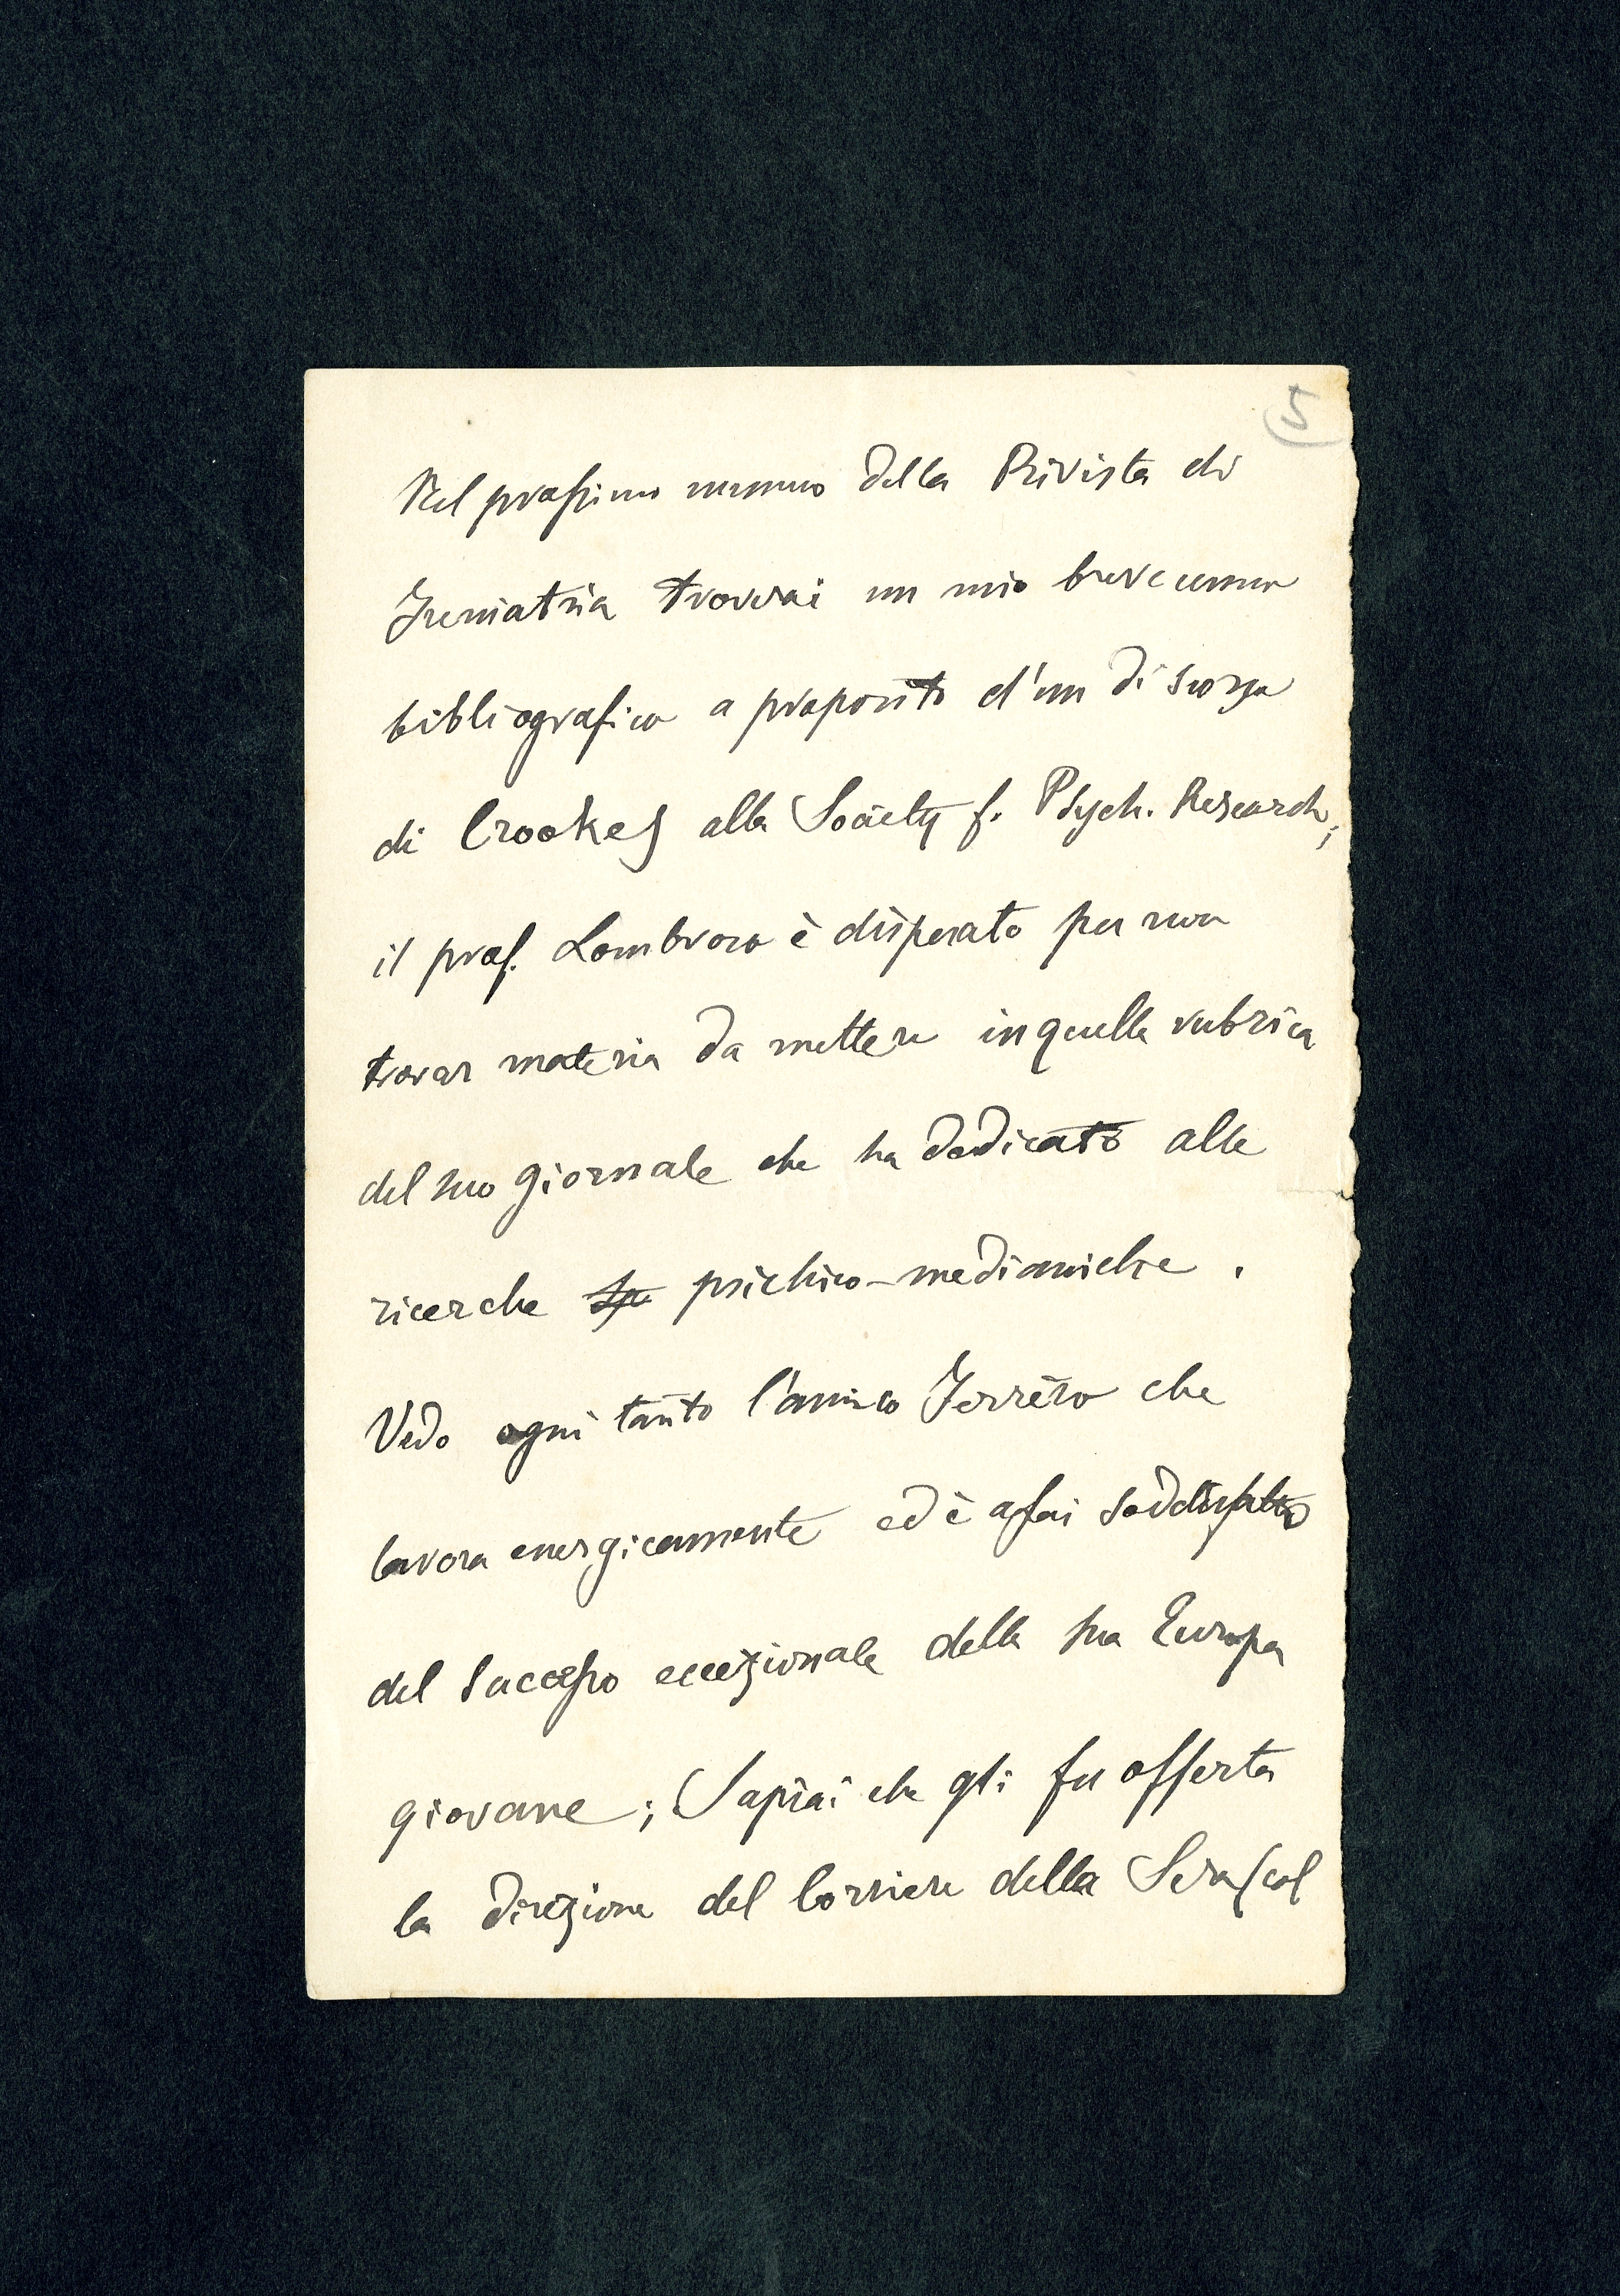 5
Nel prossimo numero della Rivista di
Freniatria troverai un mio breve cenno
bibliografico a proposito d'un discorso
di Crookes alla Society f. Psych. Research;
il prof. Lombroso è disperato per non
trovar materia da mettere in quella rubrica
del suo giornale che ha dedicato alle
ricerche psichico-medianiche.
Vedo ogni tanto l'amico Ferrero che
lavora energicamente ed è assai soddisfatto
del successo eccezionale della sua Europa
giovane; Saprai che gli fu offerta
la direzione del Corriere della Sera (col